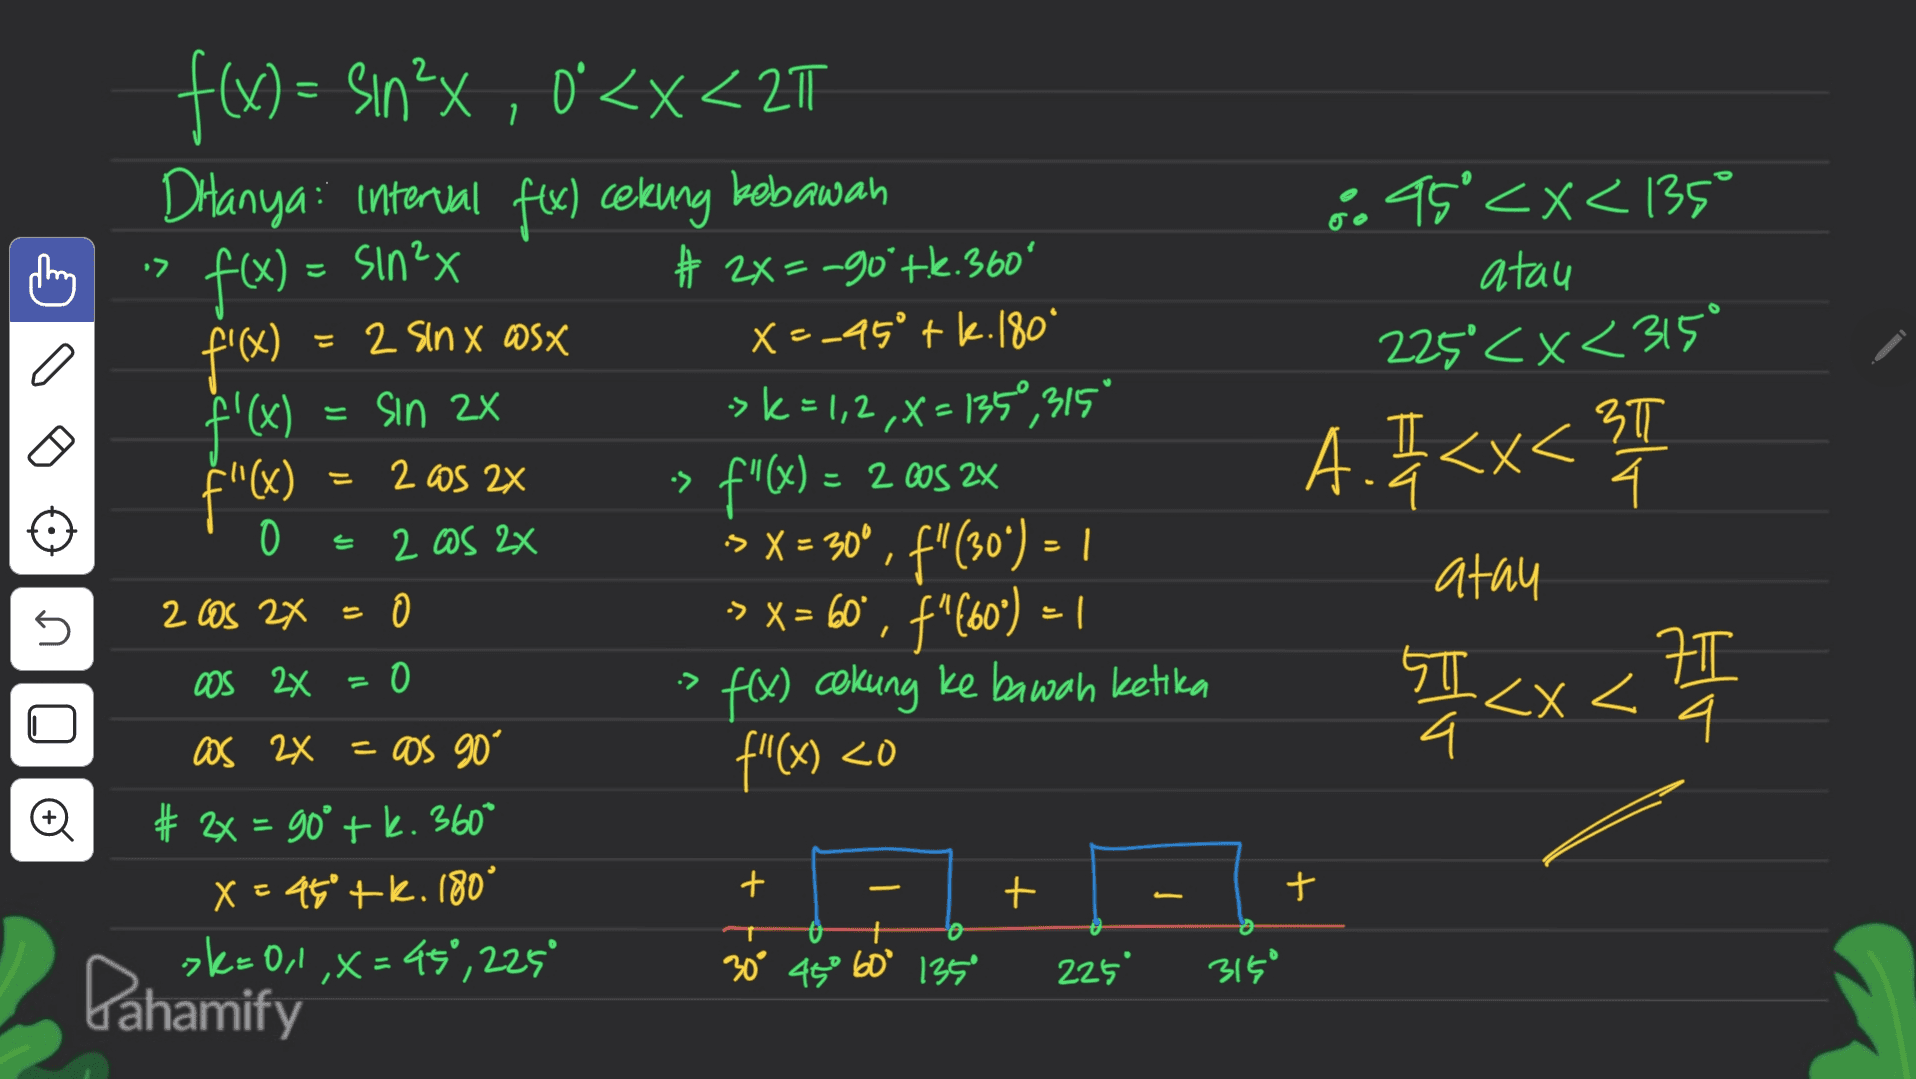 f(x) = sin²x , 0° < x < 2π
Ditanya: interval f(x) cekung kebawah
-> f(x) = sin²x
f'(x) = 2 sin x cosx
f'(x) = sin 2x
f''(x) = 2 cos 2x
0 = 2 cos 2x
2 cos 2x = 0
cos 2x = 0
cos 2x = cos 90°
# 2x = 90° + k. 360°
x = 45° + k. 180°
-> k = 0,1 , x = 45°, 225°
# 2x = -90° + k. 360°
x = -45° + k. 180°
-> k = 1,2 , x = 135°, 315°
-> f''(x) = 2 cos 2x
-> x = 30° , f''(30°) = 1
-> x = 60° , f''(60°) = 1
-> f(x) cekung ke bawah ketika
f''(x) < 0
+ - + - +
30° 45° 60° 135° 225° 315°
∴ 45° < x < 135°
atau
225° < x < 315°
A. π/4 < x < 3π/4
atau
5π/4 < x < 7π/4
Pahamify